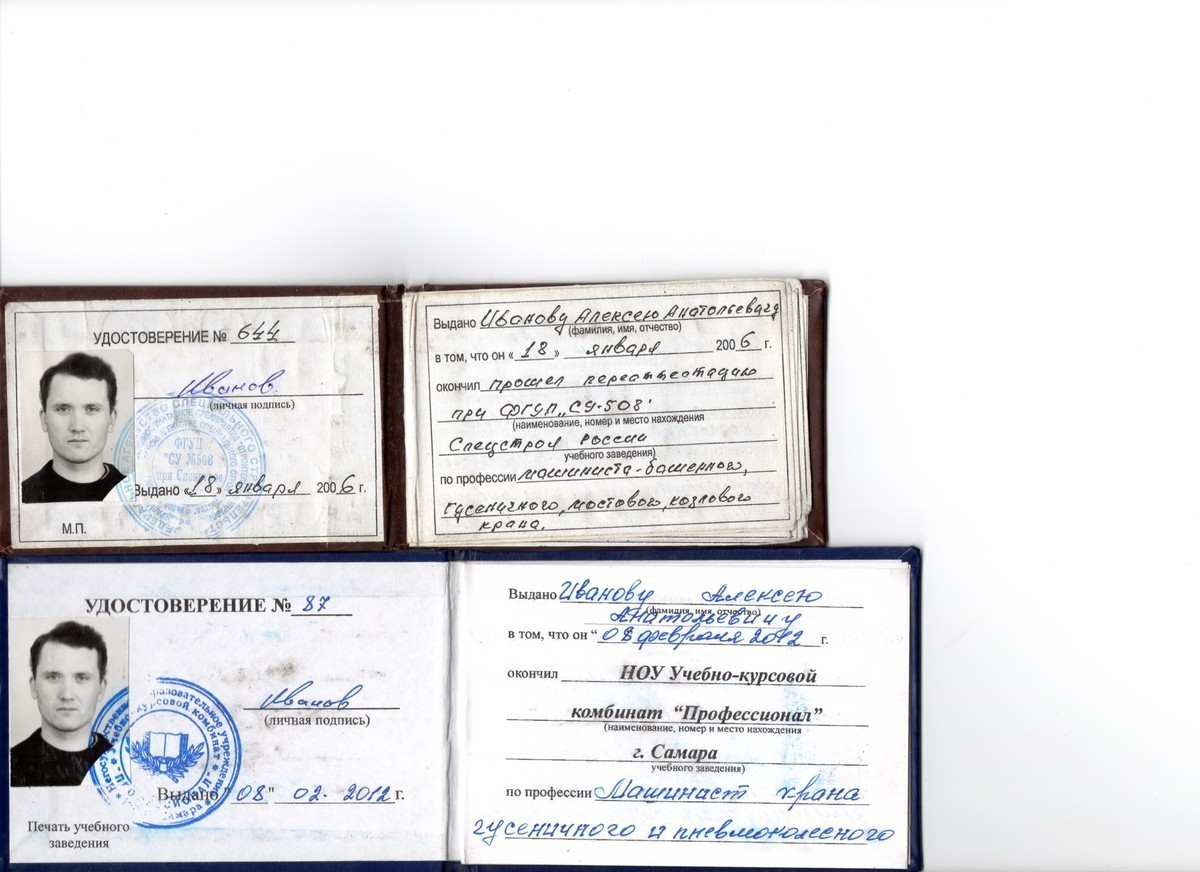 УДОСТОВЕРЕНИЕ № 644
Иванов
(личная подпись)
ФГУП
"СУ №508
при Спецстрое
Выдано «18» января 2006 г.
М.П.
Выдано Иванову Алексею Анатольевичу
(фамилия, имя, отчество)
в том, что он «18» января 2006 г.
окончил прошел переаттестацию
при ФГУП „СУ-508"
(наименование, номер и место нахождения
Спецстроя России
учебного заведения)
по профессии машиниста-башенного,
гусеничного, мостового, козлового
крана.
УДОСТОВЕРЕНИЕ № 87
Иванов
(личная подпись)
Выдано "08" 02. 2012 г.
Печать учебного
заведения
Выдано Иванову Алексею
(фамилия, имя, отчество)
Анатольевичу
в том, что он "08 февраля 2012 г.
окончил НОУ Учебно-курсовой
комбинат "Профессионал"
(наименование, номер и место нахождения
г. Самара
учебного заведения)
по профессии Машинист крана
гусеничного и пневмоколесного